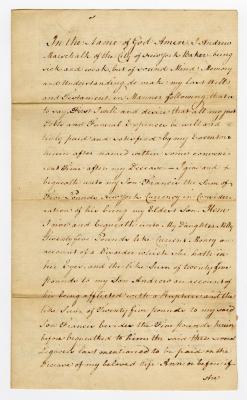 In the Name of God Amen I Andrew
Marschalk of the City of New York Baker being
sick and weak but of sound Mind Memory
and Understanding do make my last Will
and Testament in Manner following that is
to say First I will and desire that all my just
Debts and Funeral Expences be well and
truly paid and satisfied by my Executors
herein after named within some convene=
=ent Time after my Decease I give and
bequeath unto my Son Francis the Sum of
Five Pounds New York Currency in Consider=
=ation of his being my Eldest Son Item
I give and bequeath unto My Daughter
Twenty five Pounds like Current Money on
account of a Disorder which She hath in
her Eyes, and the like Sum of twenty five
pounds to my Son Andrew on account of
his being afflicted with a Rupture and the
like Sum of Twenty five pounds to my said
Son Francis besides the Five pounds herein
before bequeathed to him the said three several
Legacies last mentioned to be paid on the
Decease of my beloved Wife Ann or before if
she